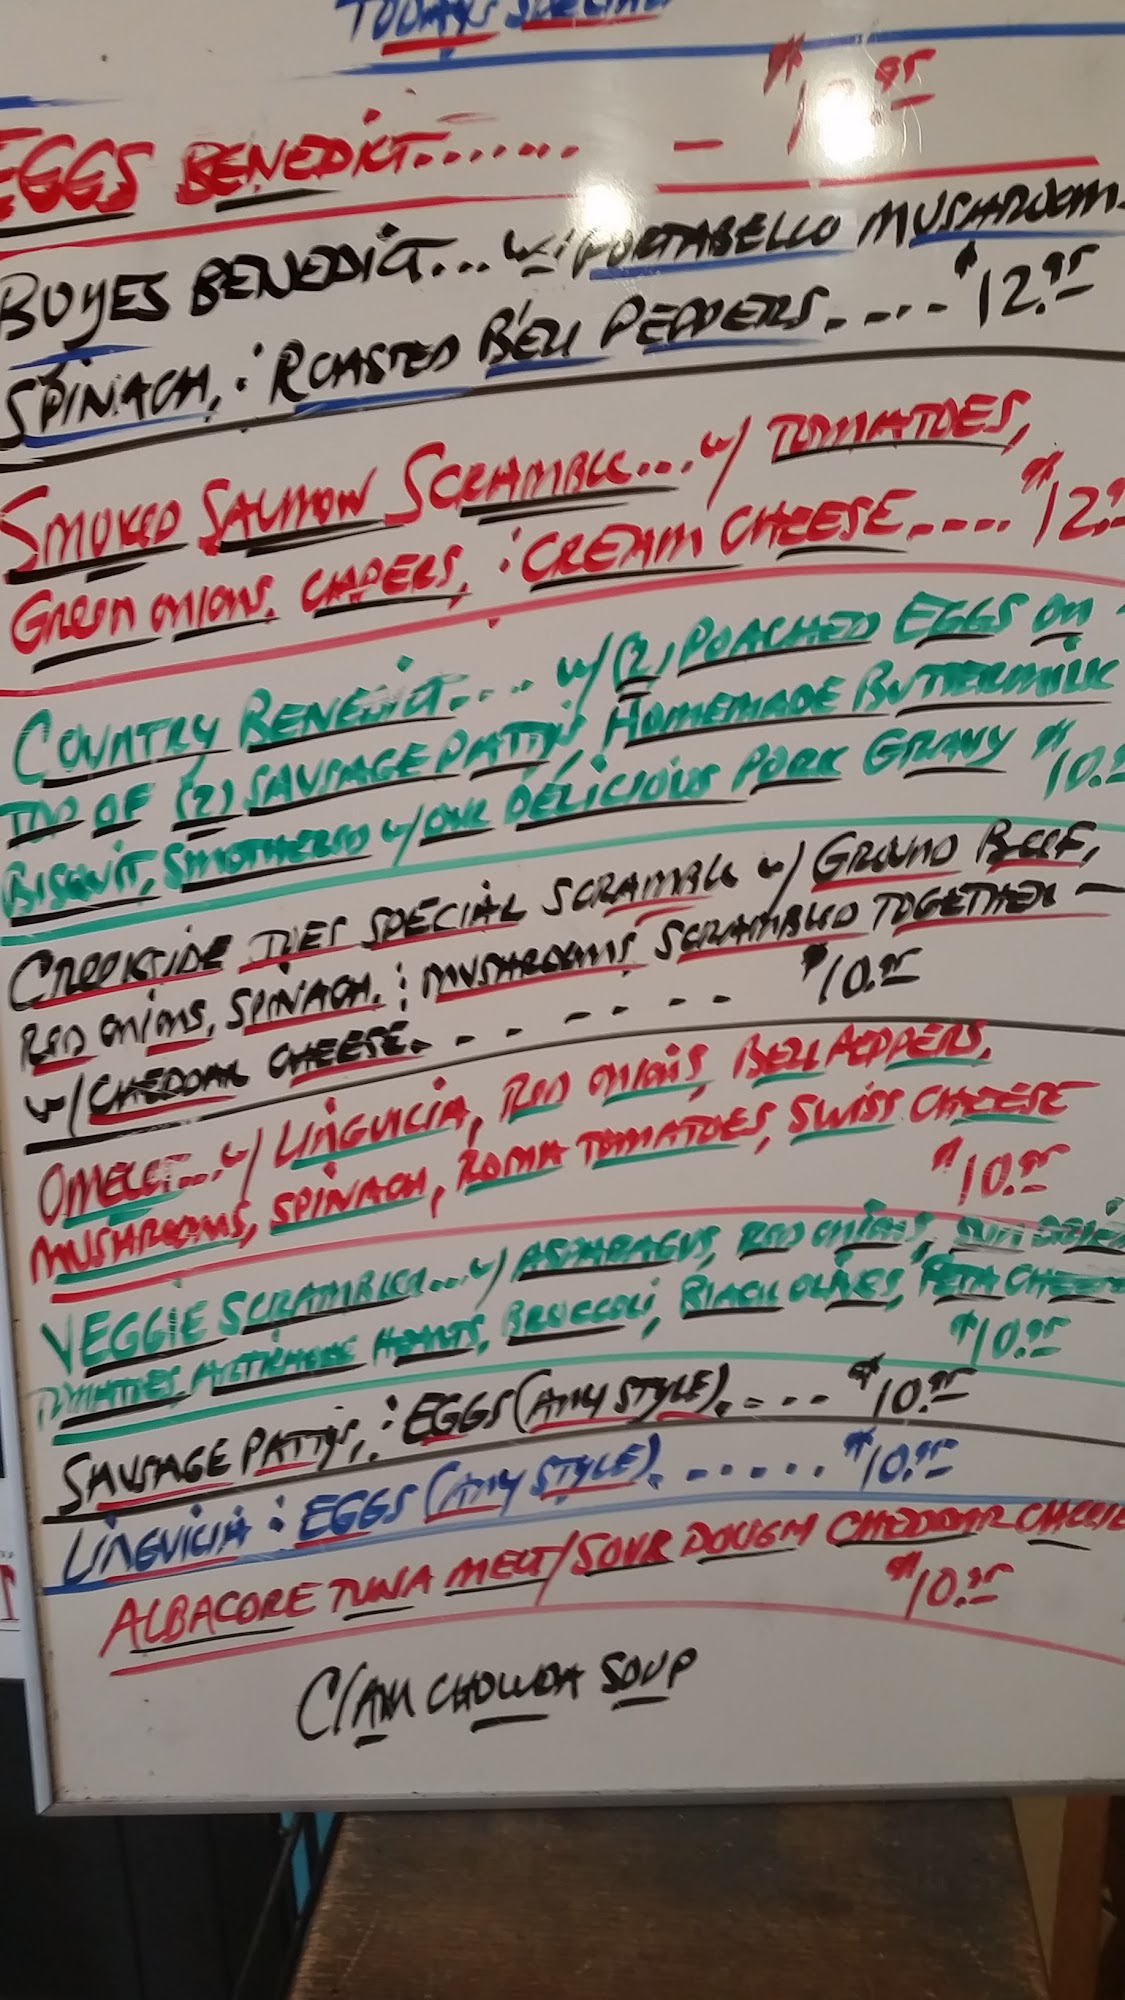 TODAYS SPECIAL
EGGS BENEDICT....... - $1 .95
BOYES BENEDICT... W/ PORTABELLO MUSHROOM
SPINACH, & ROASTED BELL PEPPERS..... $12.95
SMOKED SALMON SCRAMBLE... W/ TOMATOES,
GREEN ONIONS, CAPERS, & CREAM CHEESE..... $12.9
COUNTRY BENEDICT.... W/ (2) POACHED EGGS ON
TOP OF (2) SAUSAGE PATTYS, HOMEMADE BUTTERMILK
BISQUIT, SMOTHERED W/ OUR DELICIOUS PORK GRAVY $10.
CREEKSIDE JOES SPECIAL SCRAMBLE W/ GROUND BEEF,
RED ONIONS, SPINACH, & MUSHROOMS, SCRAMBLED TOGETHER -
W/ CHEDDAR CHEESE....... $10.95
OMELET... W/ LINGUICIA, RED ONIONS, BELL PEPPERS,
MUSHROOMS, SPINACH, ROMA TOMATOES, SWISS CHEESE
$10.95
VEGGIE SCRAMBLE... W/ ASPARAGUS, RED ONIONS, SUN DRIED
TOMATOES, ARTICHOKE HEARTS, BROCCOLI, BLACK OLIVES, FETA CHEESE
$10.95
SAUSAGE PATTYS, & EGGS (ANY STYLE)..... $10.95
LINGUICIA & EGGS (ANY STYLE)....... $10.95
ALBACORE TUNA MELT/SOUR DOUGH CHEDDAR CHEESE
$10.95
CLAM CHOWDA SOUP